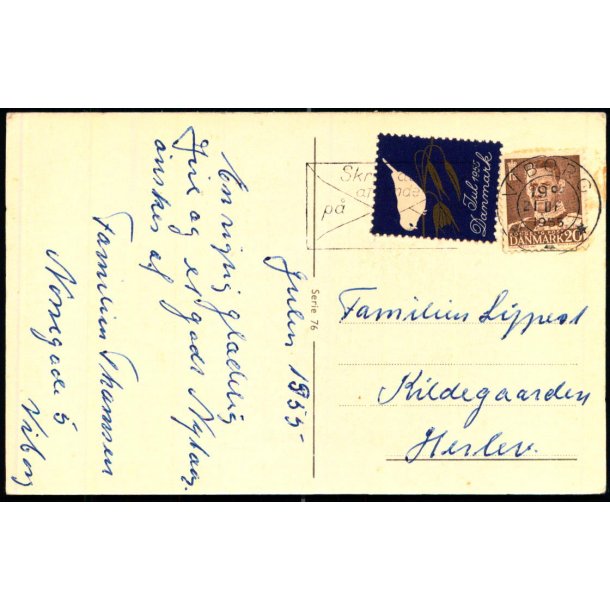 Julen 1955
En rigtig glædelig
Jul og et godt Nytaar
ønskes af
Familien Thomsen
Nørregade 5
Viborg
Serie 76
Skr
på
Jul 1955
Danmark
VIBORG
19
21 12
1955
DANMARK 20
Familien Lippert
Kildegaarden
Herlev.